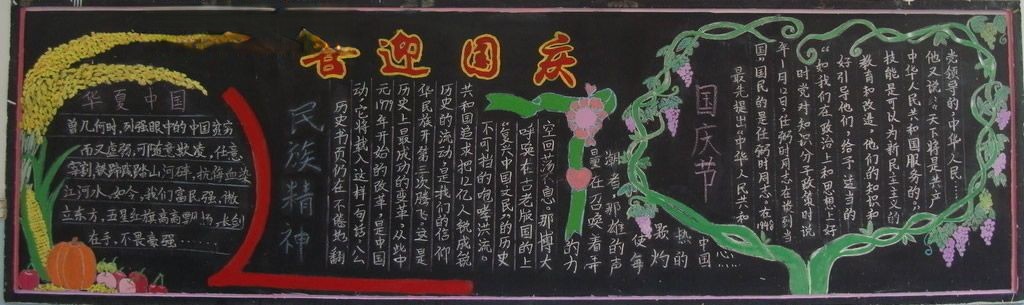 喜迎国庆
华夏中国
曾几何时,列强眼中的中国贫穷
而又虚弱,可随意欺凌,任意
宰割,铁蹄践踏山河碎,抗倭血染
江河水,如今,我们富民强,傲
立东方,五星红旗高高飘扬,长剑
在手,不畏豪强……
民族精神
历史书页仍在不悠地翻
动,它将载入这样一句话:公
元1979年开始的改革,是中国
历史上最成功的变革,从此中
华民族开第三次腾飞,这是
历史的流动,是我们的信仰
共和国追求把12亿人铸成锐
不可挡的咆哮洪流。
复兴中国文民的历史
呼唤在古老版国的上
空回荡不息,那博大
的力
量,在召唤着
那雄的声
使每
热的
中国
国庆节
最先提出"中华人民共和
国"国民的是任弼时同志。在1948
年1月12日,任弼时同志在谈到当
时党对知识分子政策时说
"和我们在政治上和思想上好
好引导他们,给予适当的
教育和改进,他们的知识和
技能是可以为新民主主义的
中华人民共和国服务的。"
他又说:"天下将是共产
党领导的中华人民…